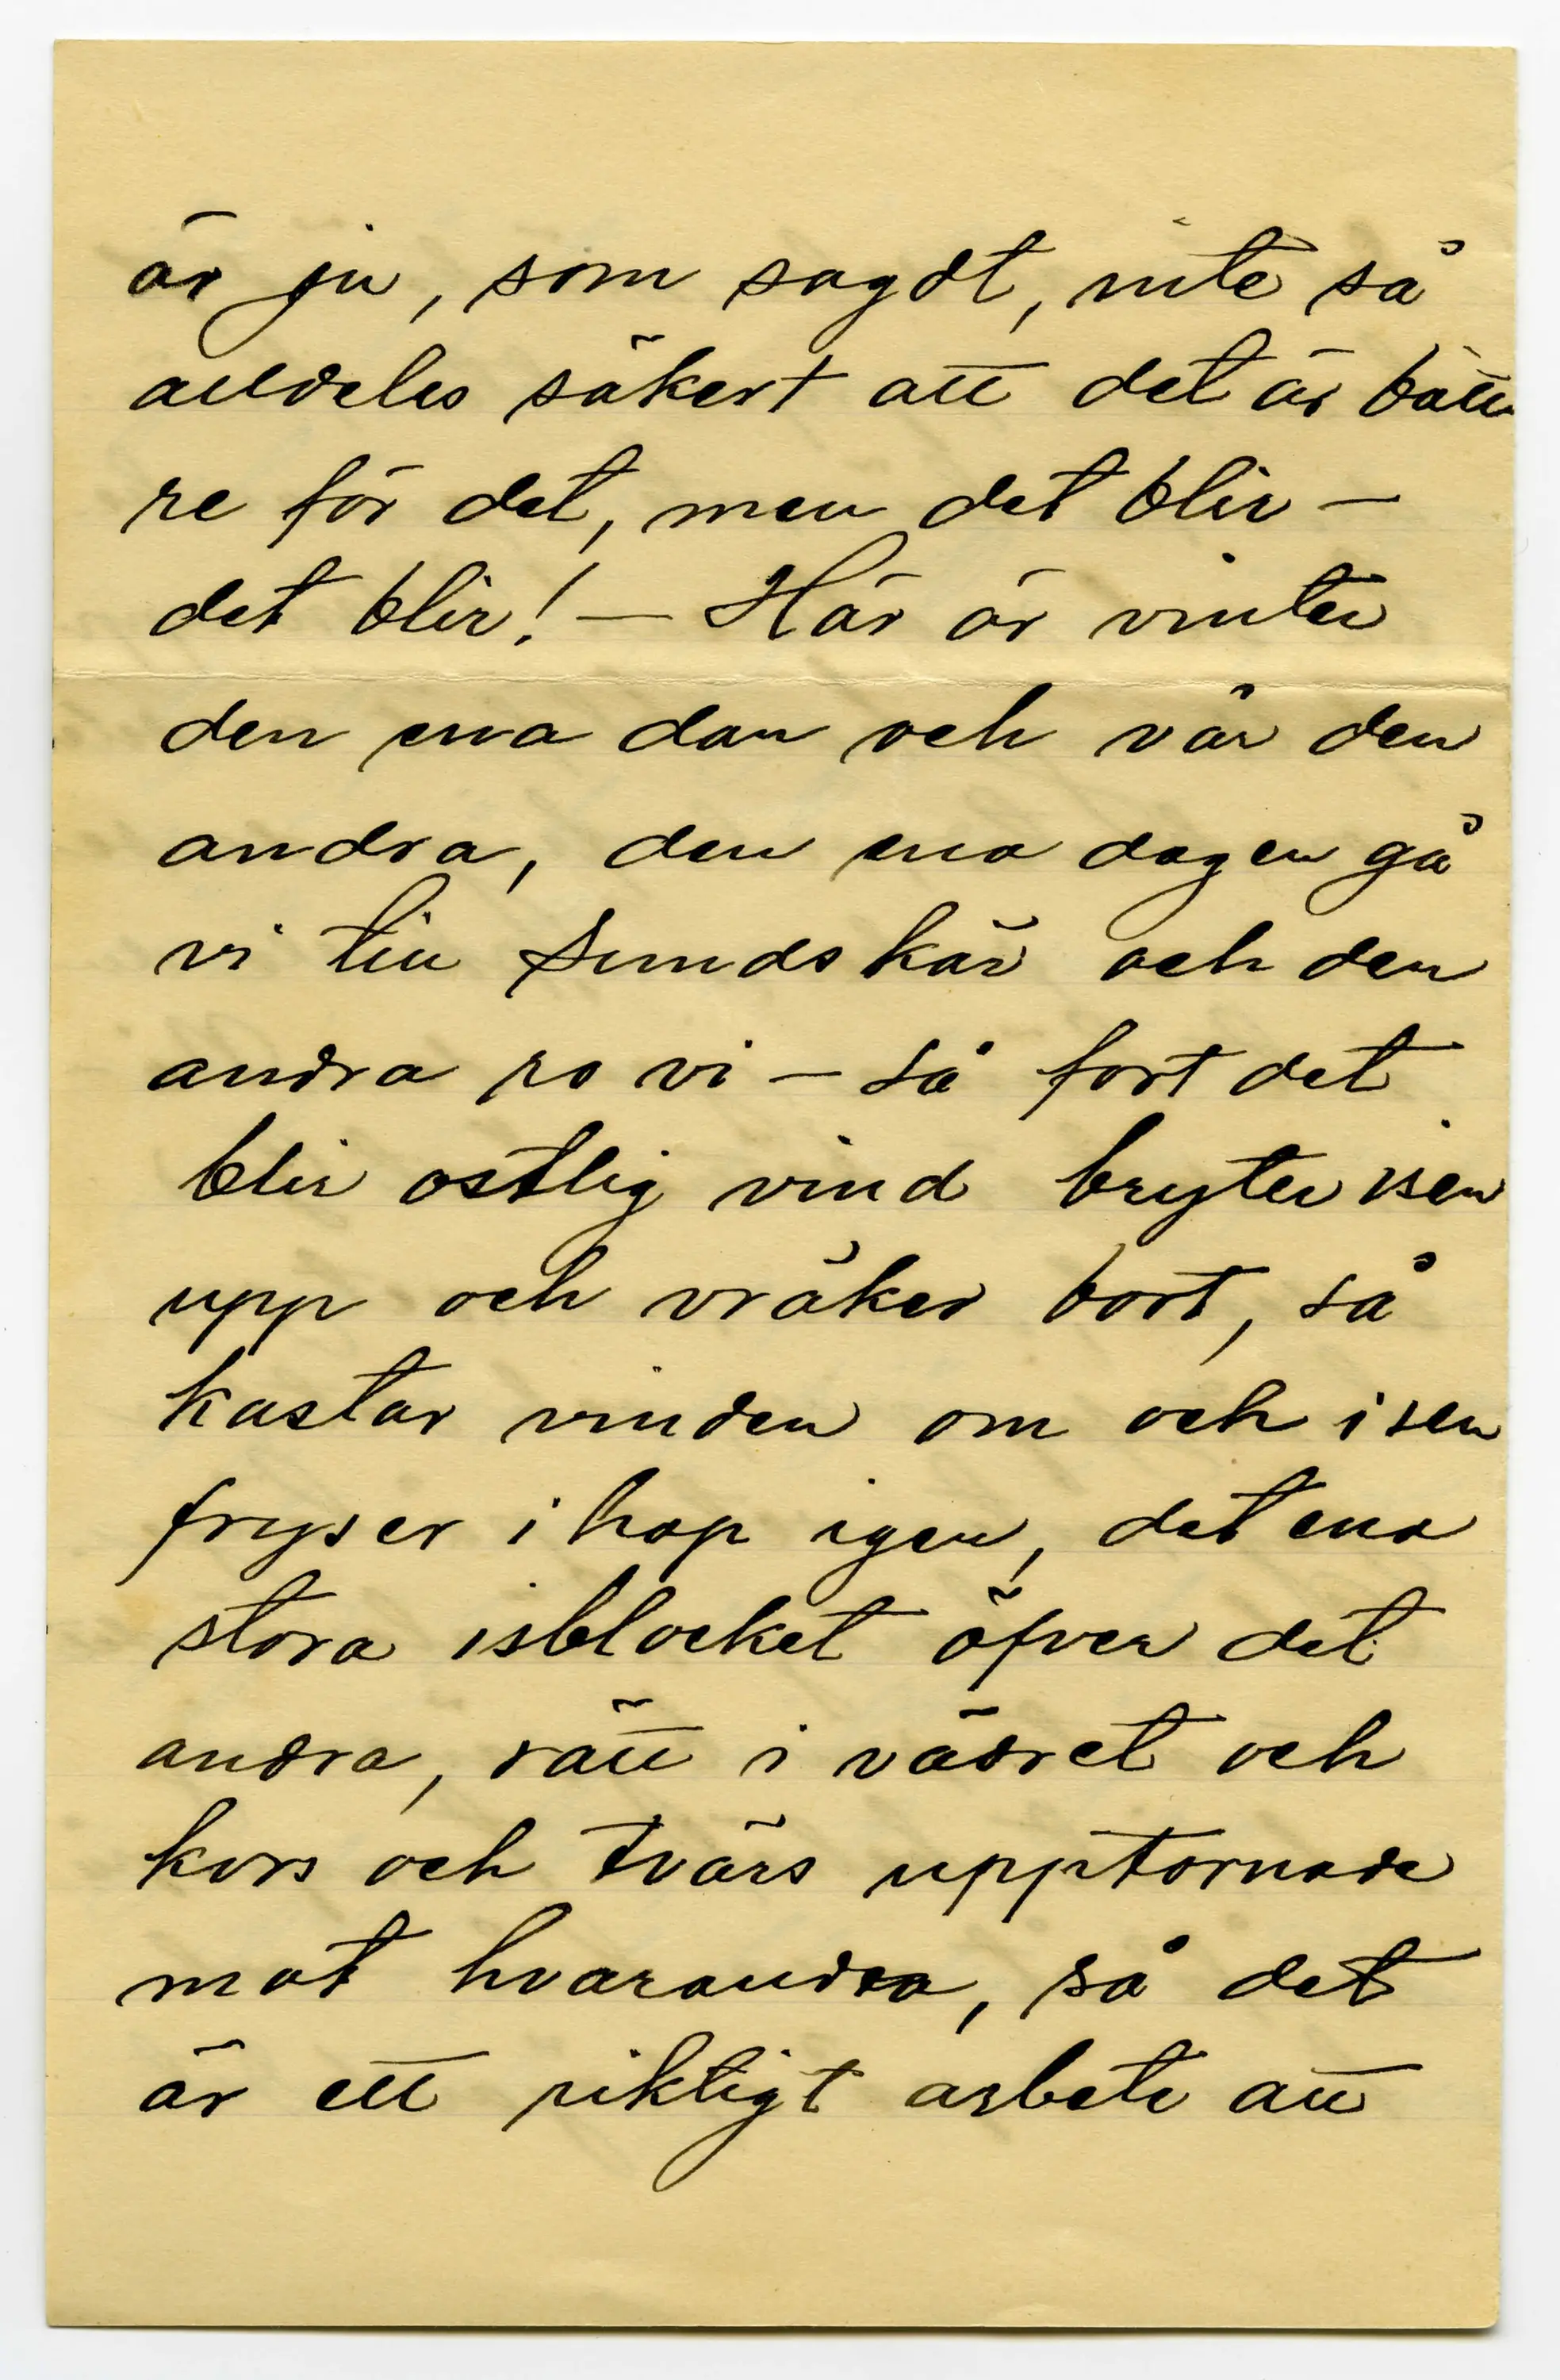 är ju, som sagdt, inte så
alldeles säkert att det är bätt
re för det, men det blir —
det blir! — Här är vinter
den ena dan och vår den
andra, den ena dagen gå
vi till Sundskär och den
andra ro vi — så fort det
blir ostlig vind bryter isen
upp och vräker bort, så
kastar vinden om och isen
fryser ihop igen, det ena
stora isblocket öfver det
andra, rätt i vädret och
kors och tvärs upptornade
mot hvarandra, så det
är ett riktigt arbete att